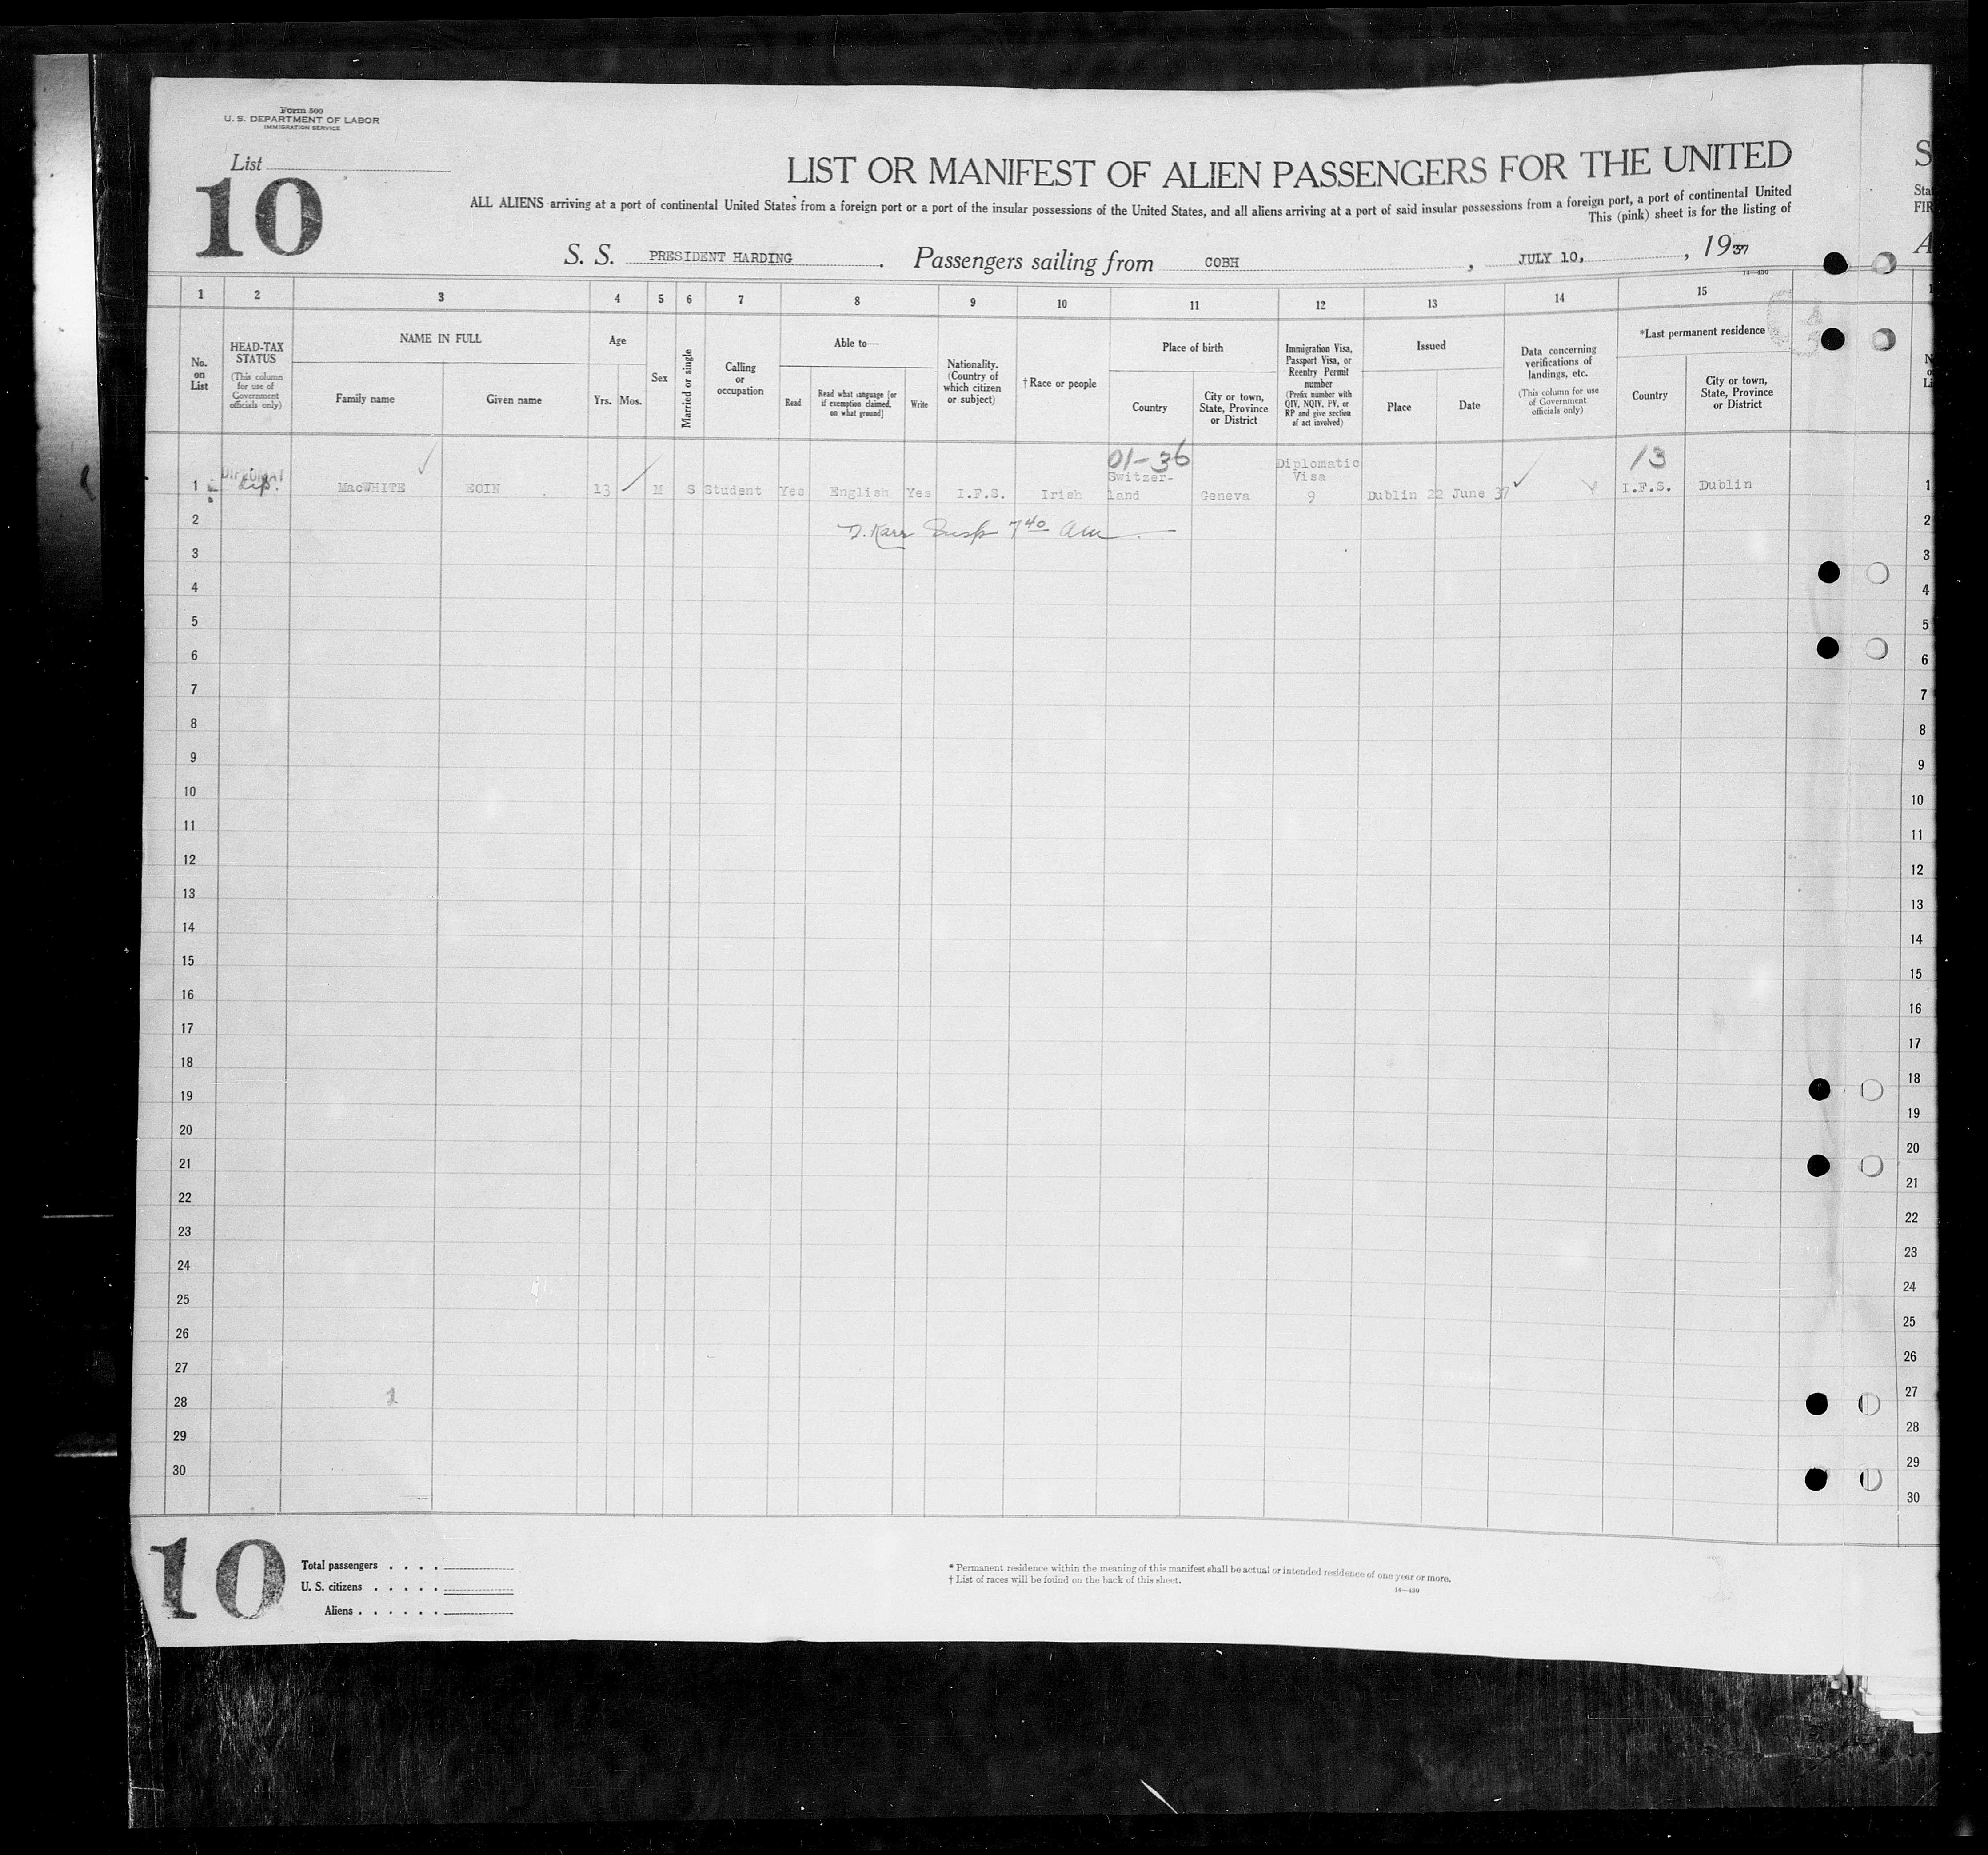 Form 500
U. S. DEPARTMENT OF LABOR
IMMIGRATION SERVICE
List
10
LIST OR MANIFEST OF ALIEN PASSENGERS FOR THE UNITED
ALL ALIENS arriving at a port of continental United States from a foreign port or a port of the insular possessions of the United States, and all aliens arriving at a port of said insular possessions from a foreign port, a port of continental United
This (pink) sheet is for the listing of
S. S. PRESIDENT HARDING. Passengers sailing from COBH, JULY 10, , 1937
14—430
1 2 3 4 5 6 7 8 9 10 11 12 13 14 15
No. on List
HEAD-TAX STATUS
(This column for use of Government officials only)
NAME IN FULL
Family name Given name
Age
Yrs. Mos.
Sex
Married or single
Calling or occupation
Able to—
Read
Read what language [or if exemption claimed, on what ground]
Write
Nationality. (Country of which citizen or subject)
†Race or people
Place of birth
Country
City or town, State, Province or District
Immigration Visa, Passport Visa, or Reentry Permit number
(Prefix number with QIV, NQIV, PV, or RP and give section of act involved)
Issued
Place Date
Data concerning verifications of landings, etc.
(This column for use of Government officials only)
*Last permanent residence
Country
City or town, State, Province or District
S
Sta
FIR
A
01-36 13
1 DIPLOMAT dip. MacWHITE EOIN 13 M S Student Yes English Yes I.F.S. Irish Switzer-land Geneva Diplomatic Visa 9 Dublin 22 June 37 I.F.S. Dublin 1
2 Karr Insp 7 40 am 2
3 3
4 4
5 5
6 6
7 7
8 8
9 9
10 10
11 11
12 12
13 13
14 14
15 15
16 16
17 17
18 18
19 19
20 20
21 21
22 22
23 23
24 24
25 25
26 26
27 27
28 1 28
29 29
30 30
10
Total passengers . . . .
U. S. citizens . . . . .
Aliens . . . . . .
* Permanent residence within the meaning of this manifest shall be actual or intended residence of one year or more.
† List of races will be found on the back of this sheet.
14—430